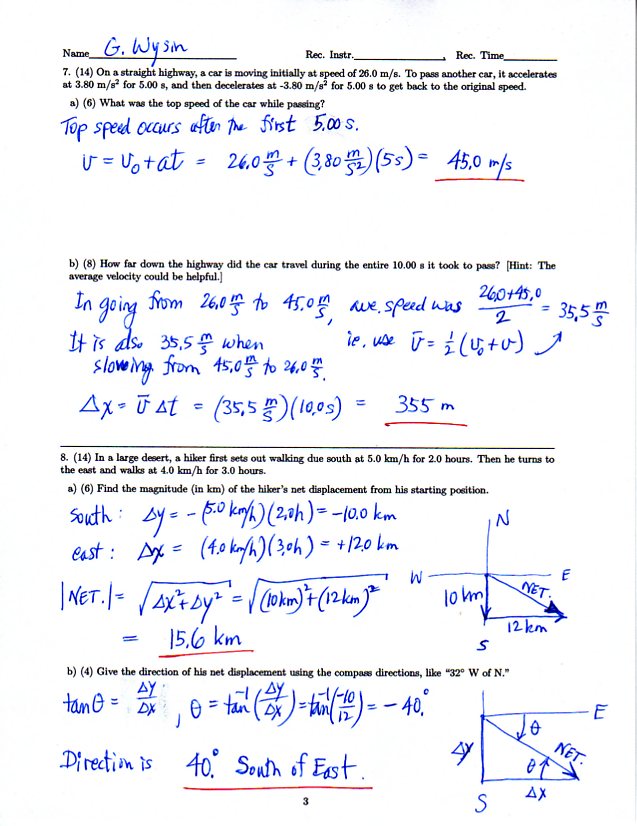 Name G. Wysin Rec. Instr. Rec. Time
7. (14) On a straight highway, a car is moving initially at speed of 26.0 m/s. To pass another car, it accelerates
at 3.80 m/s² for 5.00 s, and then decelerates at -3.80 m/s² for 5.00 s to get back to the original speed.
a) (6) What was the top speed of the car while passing?
Top speed occurs after the first 5.00 s.
v = v₀ + at = 26.0 m/s + (3.80 m/s²)(5s) = 45.0 m/s
b) (8) How far down the highway did the car travel during the entire 10.00 s it took to pass? [Hint: The
average velocity could be helpful.]
In going from 26.0 m/s to 45.0 m/s, ave. speed was (26.0+45.0)/2 = 35.5 m/s
It is also 35.5 m/s when ie. use v̄ = ½(v₀+v)
slowing from 45.0 m/s to 26.0 m/s.
Δx = v̄ Δt = (35.5 m/s)(10.0s) = 355 m
8. (14) In a large desert, a hiker first sets out walking due south at 5.0 km/h for 2.0 hours. Then he turns to
the east and walks at 4.0 km/h for 3.0 hours.
a) (6) Find the magnitude (in km) of the hiker's net displacement from his starting position.
South: Δy = -(5.0 km/h)(2.0h) = -10.0 km
N
east: Δx = (4.0 km/h)(3.0h) = +12.0 km
W E
|NET.| = √(Δx²+Δy²) = √((10km)²+(12km)²)
10 km NET.
12 km
= 15.6 km
S
b) (4) Give the direction of his net displacement using the compass directions, like "32° W of N."
tanθ = Δy/Δx, θ = tan⁻¹(Δy/Δx) = tan⁻¹(-10/12) = -40.°
E
θ
Δy NET.
Direction is 40.° South of East.
θ
Δx
S
3